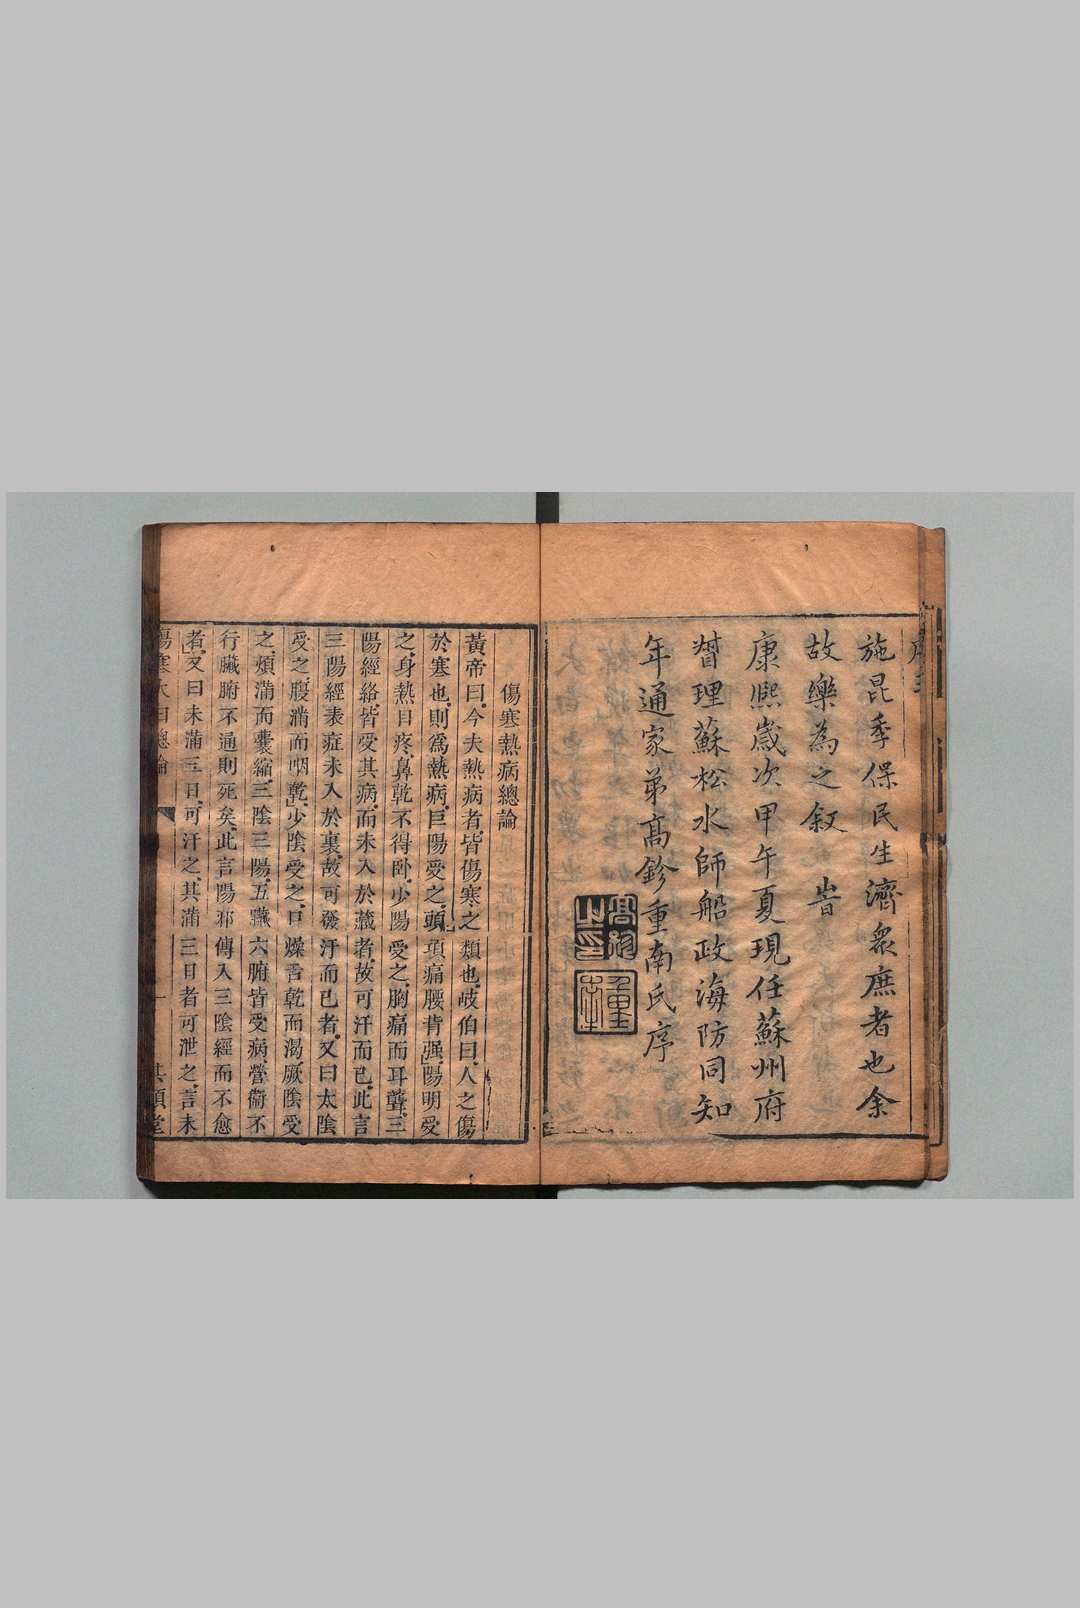 施昆季保民生濟衆庶者也余
故樂為之敘 旹
康熙歲次甲午夏現任蘇州府
督理蘇松水師船政海防同知
年通家弟高鉁重南氏序
傷寒熱病總論
黃帝曰今夫熱病者皆傷寒之類也岐伯曰人之傷
於寒也則爲熱病巨陽受之頭項痛腰背强陽明受
之身熱目疼鼻乾不得卧少陽受之胸痛而耳聾三
陽經絡皆受其病而未入於藏者故可汗而已此言
三陽經表症未入於裏故可發汗而已者又曰太陰
受之腹滿而咽乾少陰受之口燥舌乾而渴厥陰受
之煩滿而囊縮三陰三陽五臟六腑皆受病營衞不
行臟腑不通則死矣此言陽邪傳入三陰經而不愈
者又曰未滿三日可汗之其滿三日者可泄之言未
傷寒 總論 一